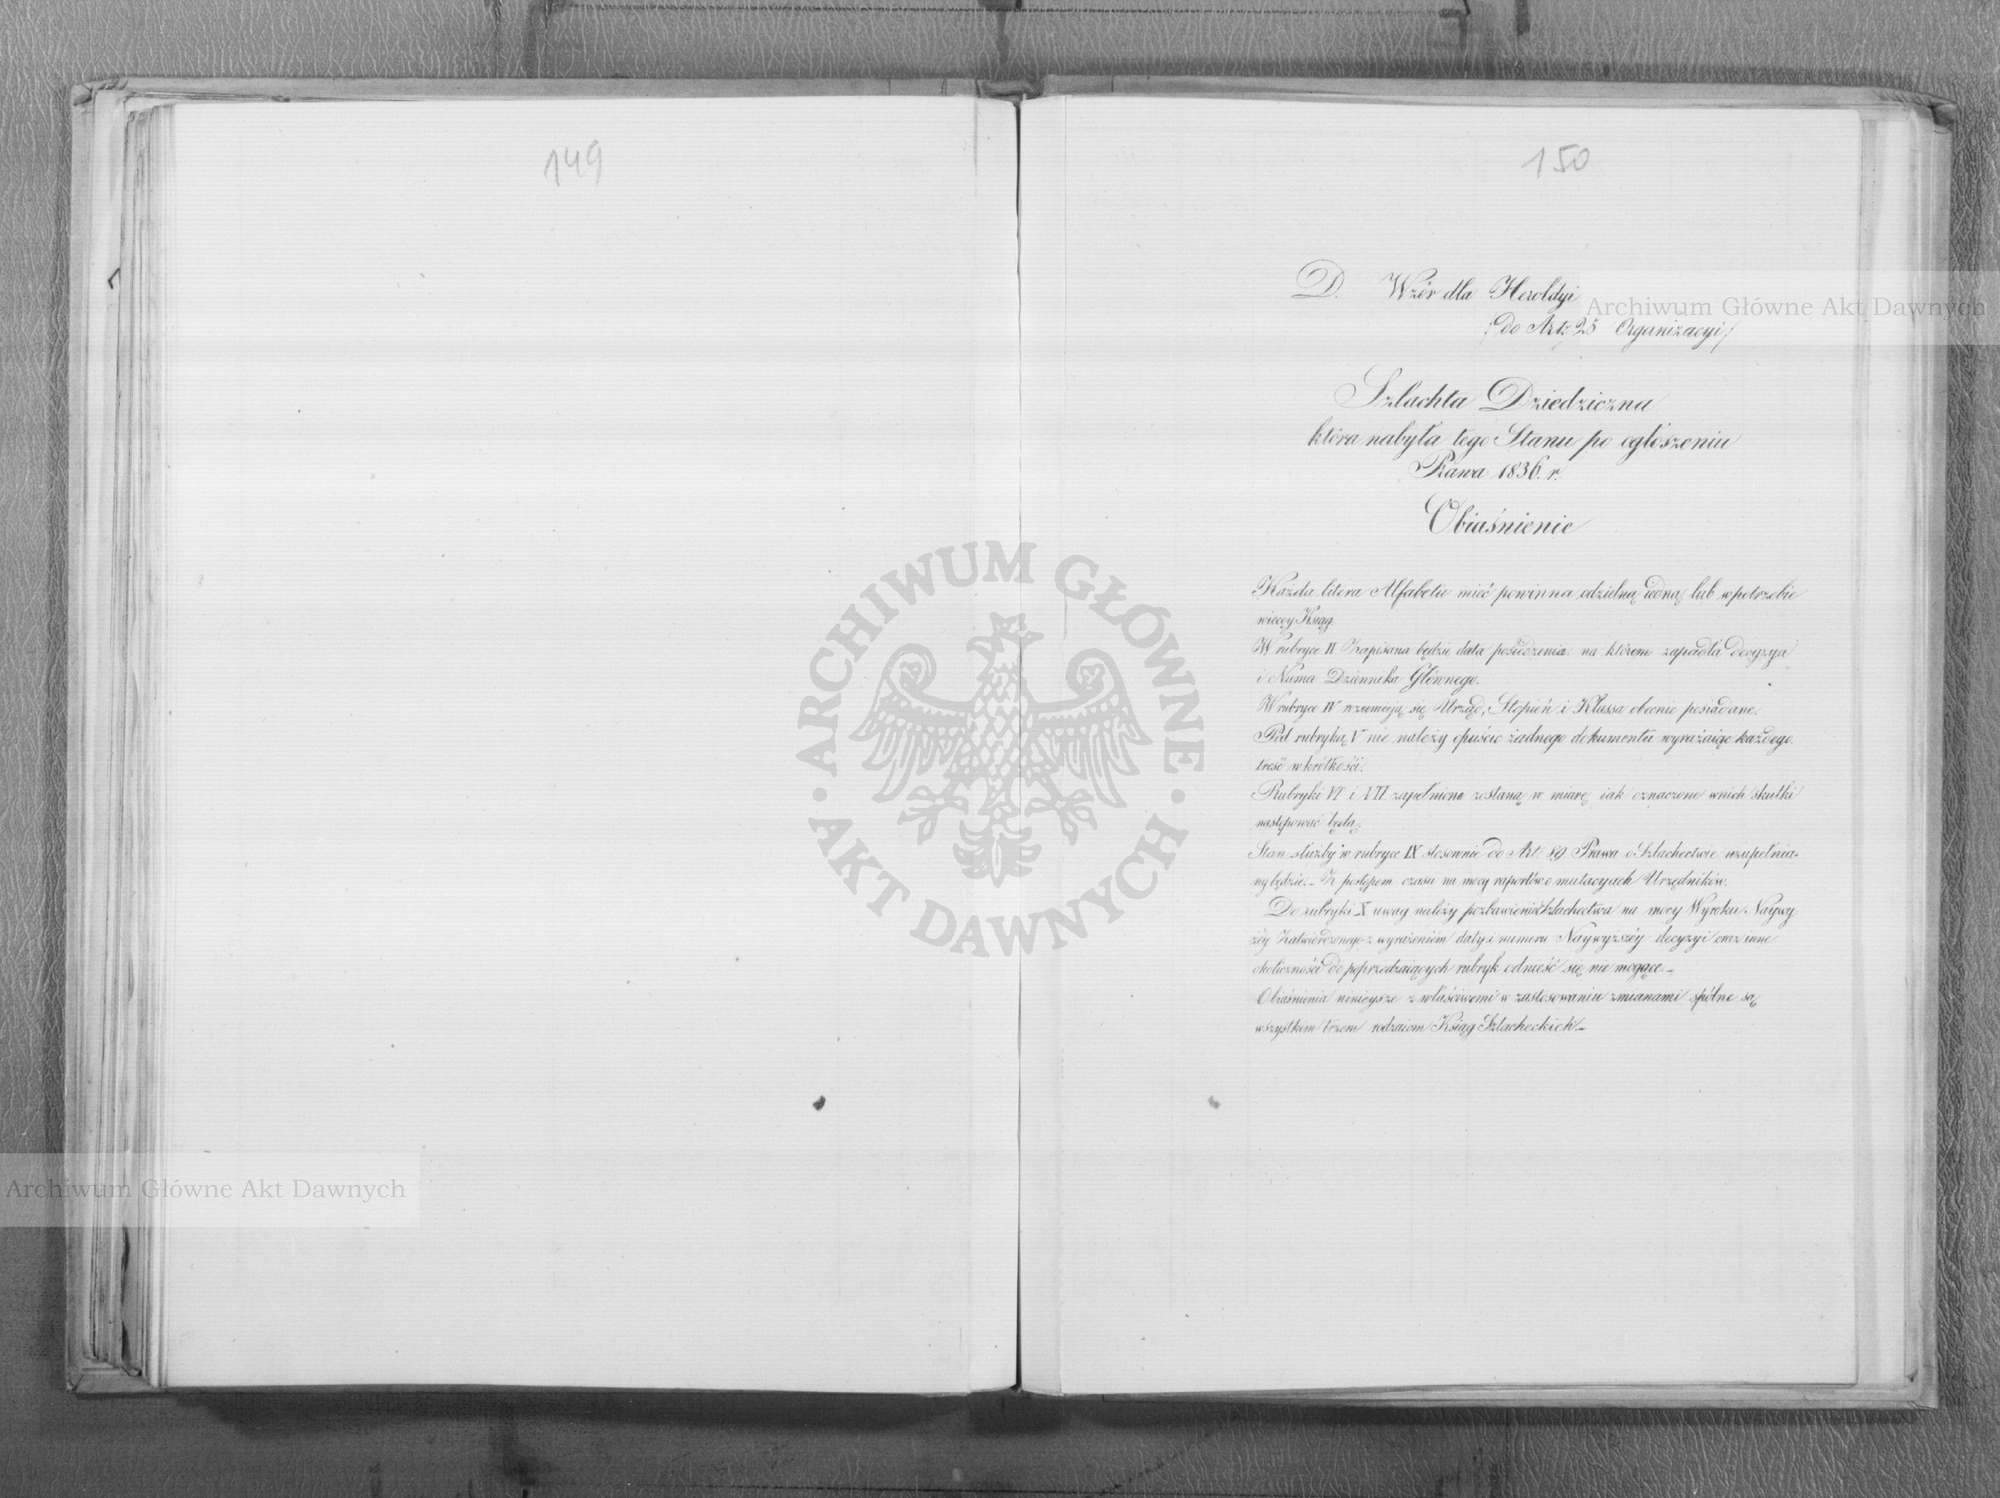 149
150
D. Wzór dla Heroldyi
/do Art: 25 Organizacyi/
Szlachta Dziedziczna
która nabyła tego Stanu po ogłoszeniu
Prawa 1836. r.
Obiaśnienie
Każda litera Alfabetu mieć powinna odzielną iedną lub w potrzebie
więcey Ksiąg.
W rubryce II Zapisana będzie data posiedzenia na którem zapadła decyzya
i Numer Dziennika Głównego.
W rubryce IV rozumieją się Urząd, Stopień i Klassa obecnie posiadane.
Pod rubryką V nie należy opuścić żadnego dokumentu wyrażaiąc każdego
treść w krótkości.
Rubryki VI i VII zapełnione zostaną w miarę iak oznaczone w nich skutki
następować będą.
Stan służby w rubryce IX stosownie do Art: 89 Prawa o Szlachectwie uzupełnia-
ny będzie. - Z postępem czasu na mocy raportów o mutacyach Urzędników.
Do rubryki X uwag należy pozbawienie Szlachectwa na mocy Wyroku Naywy
żéy Zatwierdzonego z wyrażeniem daty i numeru Naywyższéy decyzyi oraz inne
okoliczności do poprzedzaiących rubryk odnieść się nie mogące. -
Obiaśnienia ninieysze z właściwemi w zastosowaniu zmianami spólne są
wszystkim trzem rodzaiom Ksiąg Szlacheckich. -
Archiwum Główne Akt Dawnych
ARCHIWUM GŁÓWNE AKT DAWNYCH
Archiwum Główne Akt Dawnych